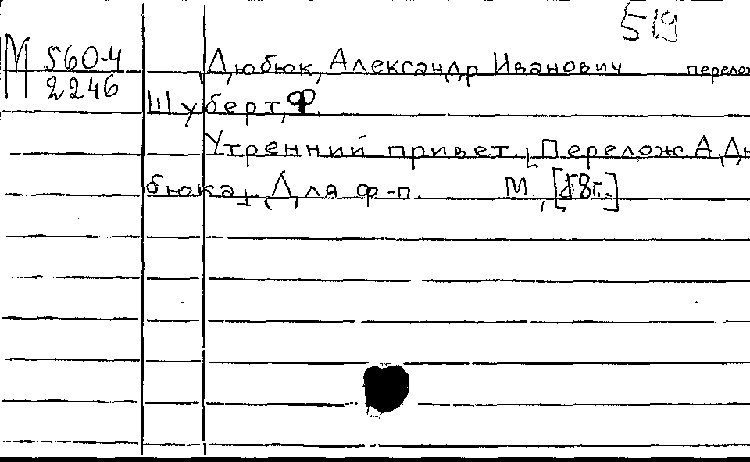 519
М 560-4 Дюбюк, Александр Иванович перелож
2246
Шуберт, Ф.
Утренний привет. [Перелож А. Дю
бюка]. Для ф-п. М., [18г.]